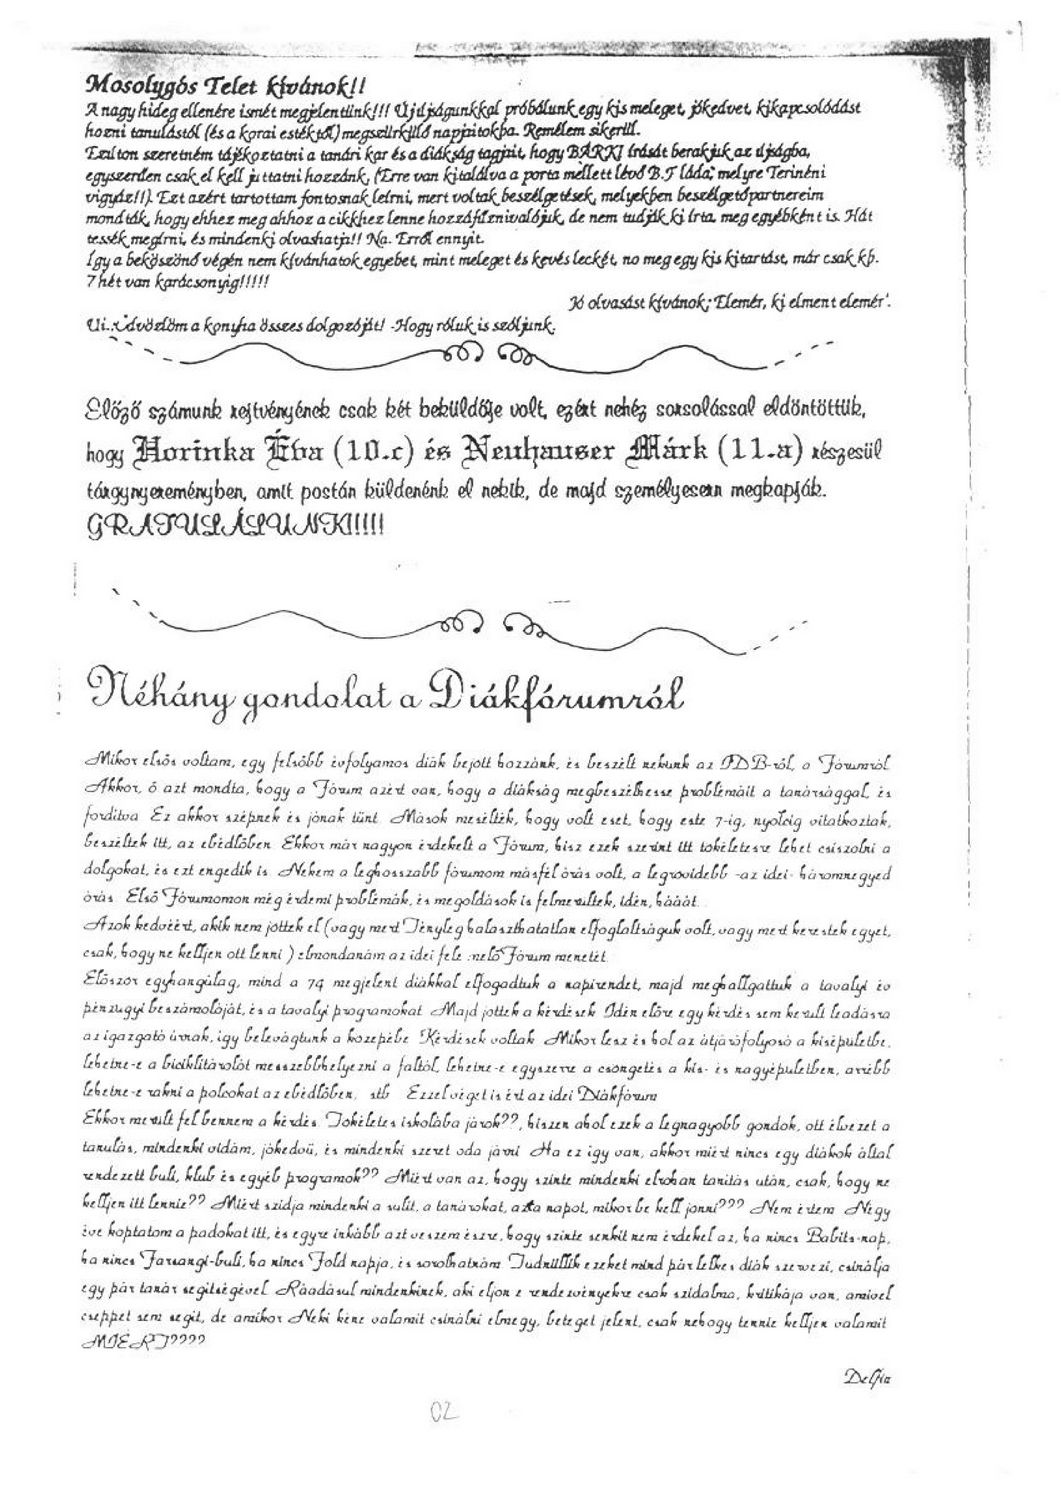 Mosolygós Telet kívánok!!
A nagy hideg ellenére ismét megjelentünk!!! Újdjságunkkal próbálunk egy kis meleget, jókedvet, kikapcsolódást
hozni tanulástól (és a korai estéktől) megszürkülő napjaitokba. Remélem sikerül.
Ezúton szeretném tájékoztatni a tanári kar és a diákság tagjait, hogy BÁRKI írását berakjuk az újságba,
egyszerűen csak el kell juttatni hozzánk, (Erre van kitalálva a porta mellett lévő B.J láda, melyre Terinéni
vigyáz!!). Ezt azért tartottam fontosnak leírni, mert voltak beszélgetések, melyekben beszélgetőpartnereim
mondták, hogy ehhez meg ahhoz a cikkhez lenne hozzáfűznivalójuk, de nem tudják ki írta, meg egyébként is. Hát
tessék megírni, és mindenki olvashatja!! Na. Erről ennyit.
Így a beköszönő végén nem kívánhatok egyebet, mint meleget és kevés leckét, no meg egy kis kitartást, már csak kb.
7 hét van karácsonyig!!!!!
Jó olvasást kívánok: 'Elemér, ki elment elemér'.
Ui.: Üdvözlöm a konyha összes dolgozóját! -Hogy róluk is szóljunk.
Előző számunk rejtvényének csak két beküldője volt, ezért nehéz sorsolással eldöntöttük,
hogy Horinka Éva (10.c) és Neuhauser Márk (11.a) részesül
tárgynyereményben, amit postán küldenénk el nekik, de majd személyesern megkapják.
GRATULÁLUNK!!!!!
Néhány gondolat a Diákfórumról
Mikor elsős voltam, egy felsőbb évfolyamos diák bejött hozzánk, és beszélt nekünk az IDB-ről, a Fórumról.
Akkor, ő azt mondta, hogy a Fórum azért van, hogy a diákság megbeszélhesse problémáit a tanársággal, és
fordítva. Ez akkor szépnek és jónak tűnt. Mások mesélték, hogy volt eset, hogy este 7-ig, nyolcig vitatkoztak,
beszéltek itt, az ebédlőben. Ekkor már nagyon érdekelt a Fórum, hisz ezek szerint itt tökéletesre lehet csiszolni a
dolgokat, és ezt engedik is. Nekem a leghosszabb fórumom másfél órás volt, a legrövidebb -az idei- háromnegyed
órás. Első Fórumomon még érdemi problémák, és megoldások is felmerültek, idén, hááát...
Azok kedvéért, akik nem jöttek el (vagy mert Tényleg halaszthatatlan elfoglaltságuk volt, vagy mert kerestek egyet,
csak, hogy ne kelljen ott lenni ) elmondanám az idei fele :nelő Fórum menetét.
Először egyhangúlag, mind a 74 megjelent diákkal elfogadtuk a napirendet, majd meghallgattuk a tavalyi év
pénzügyi beszámolóját, és a tavalyi programokat. Majd jöttek a kérdések. Idén előre egy kérdés sem került leadásra
az igazgató úrnak, így belevágtunk a közepébe. Kérdések voltak: Mikor lesz és hol az átjárófolyosó a kisépületbe,
lehetne-e a biciklitárolót messzebbhelyezni a faltól, lehetne-e egyszerre a csöngetés a kis- és nagyépületben, arébb
lehetne-e rakni a polcokat az ebédlőben, stb... Ezzel véget is ért az idei Diákfórum.
Ekkor merült fel bennem a kérdés: Tökéletes iskolába járok??, hiszen ahol ezek a legnagyobb gondok, ott élvezet a
tanulás, mindenki vidám, jókedvű, és mindenki szeret oda járni. Ha ez így van, akkor miért nincs egy diákok által
rendezett buli, klub és egyéb programok?? Miért van az, hogy szinte mindenki elrohan tanítás után, csak, hogy ne
kelljen itt lennie?? Miért szidja mindenki a sulit, a tanárokat, azta napot, mikor be kell jönni??? Nem értem. Négy
éve koptatom a padokat itt, és egyre inkább azt veszem észre, hogy szinte senkit nem érdekel az, ha nincs Babits-nap,
ha nincs Farsangi-buli, ha nincs Föld napja, és sorolhatnám. Tudniillik ezeket mind pár lelkes diák szervezi, csinálja
egy pár tanár segítségével. Ráadásul mindenkinek, aki eljön e rendezvényekre csak szidalma, kritikája van, amivel
cseppet sem segít, de amikor Neki kéne valamit csinálni elmegy, beteget jelent, csak nehogy tennie kelljen valamit.
MIÉRT????
Delfin
02